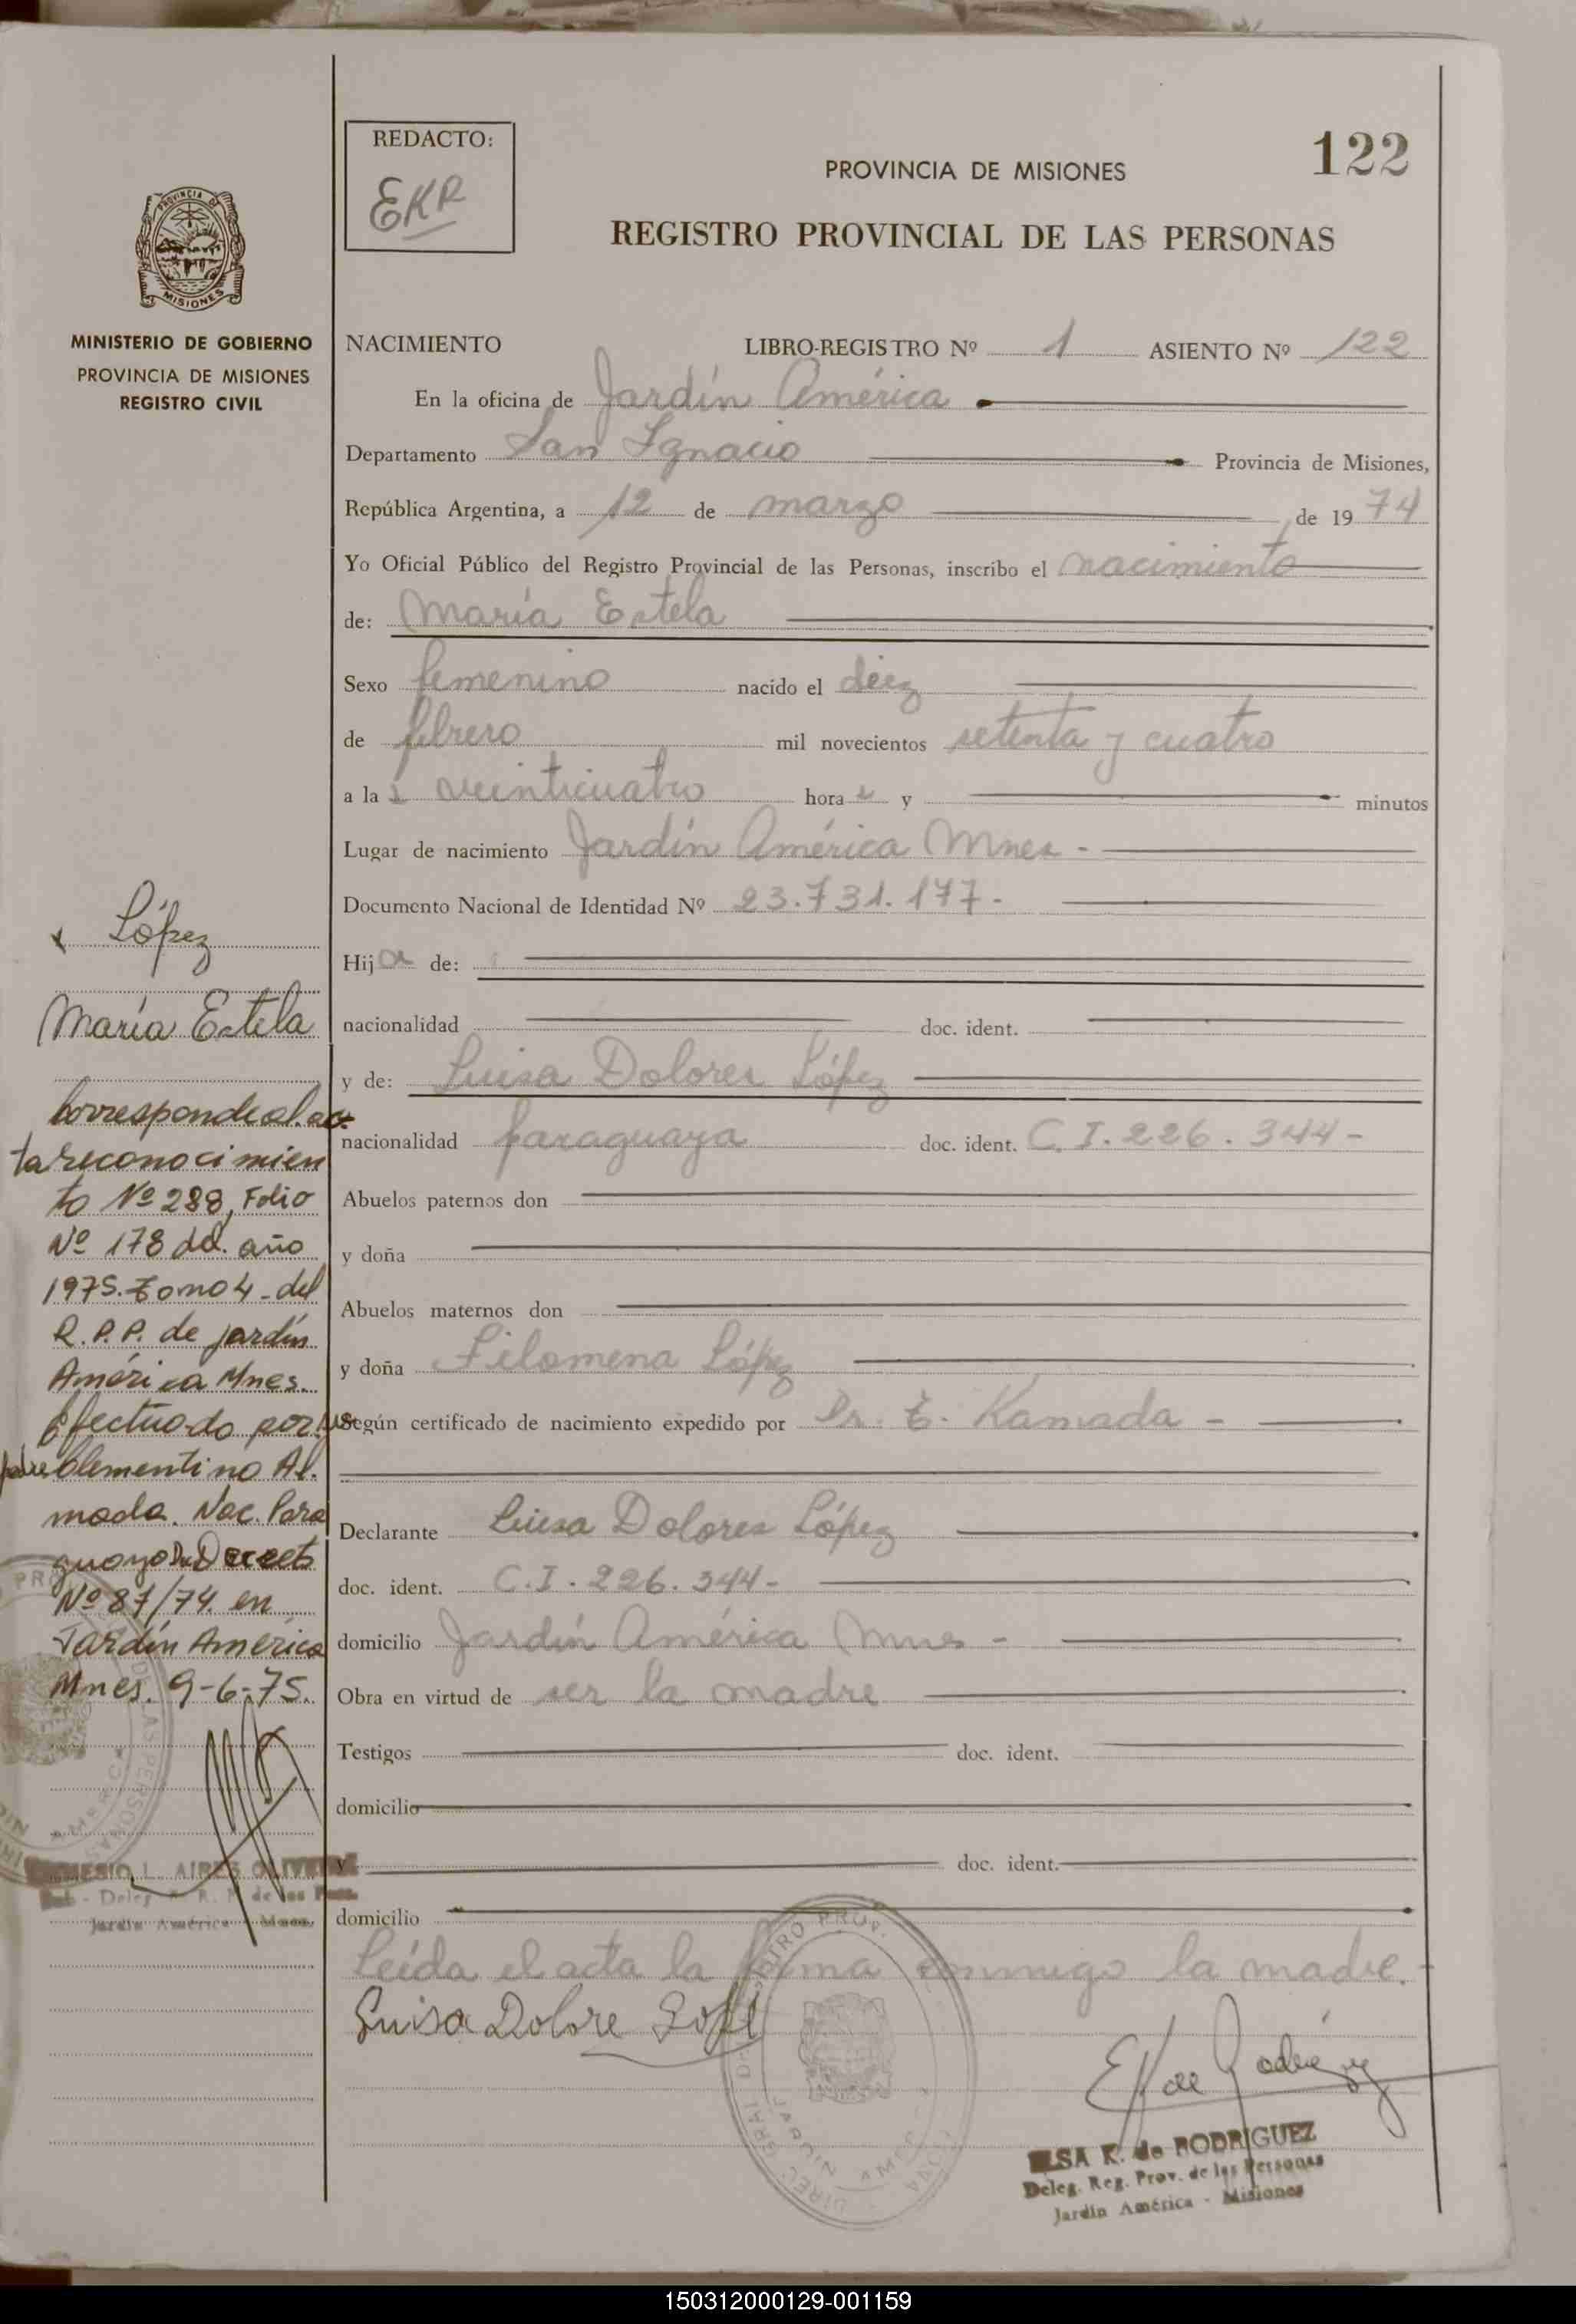 REDACTO:
EKR
122
PROVINCIA DE MISIONES
REGISTRO PROVINCIAL DE LAS PERSONAS
PROVINCIA DE
MISIONES
MINISTERIO DE GOBIERNO
PROVINCIA DE MISIONES
REGISTRO CIVIL
NACIMIENTO LIBRO-REGISTRO Nº 1 ASIENTO Nº 122
En la oficina de Jardín América
Departamento San Ignacio Provincia de Misiones,
República Argentina, a 12 de marzo de 1974
Yo Oficial Público del Registro Provincial de las Personas, inscribo el nacimiento
de: María Estela
Sexo femenino nacido el diez
de febrero mil novecientos setenta y cuatro
a las veinticuatro horas y minutos
Lugar de nacimiento Jardín América Mnes -
Documento Nacional de Identidad Nº 23.731.177.-
Hija de:
nacionalidad doc. ident.
y de: Luisa Dolores López
nacionalidad paraguaya doc. ident. C.I. 226.344-
Abuelos paternos don
y doña
Abuelos maternos don
y doña Filomena López
Según certificado de nacimiento expedido por Dr. E. Kamada -
Declarante Luisa Dolores López
doc. ident. C.I. 226.344-
domicilio Jardín América Mnes -
Obra en virtud de ser la madre
Testigos doc. ident.
domicilio
y doc. ident.
domicilio
Leída el acta la firma conmigo la madre.-
Luisa Dolore Lope
E K de Rodriguez
ELSA K. de RODRIGUEZ
Deleg. Reg. Prov. de las Personas
Jardín América - Misiones
López
María Estela
Corresponde al ac
ta reconocimien
to Nº 288, Folio
Nº 178 del año
1975. Tomo 4 - del
R.P.P. de jardín
América Mnes.
Efectuado por su
padre Clementino Al
mada. Nac. Para
guayo Decreto
Nº 87/74 en
Jardín América
Mnes. 9-6-75.
L. AIRES
Jardín América - Mnes.
150312000129-001159